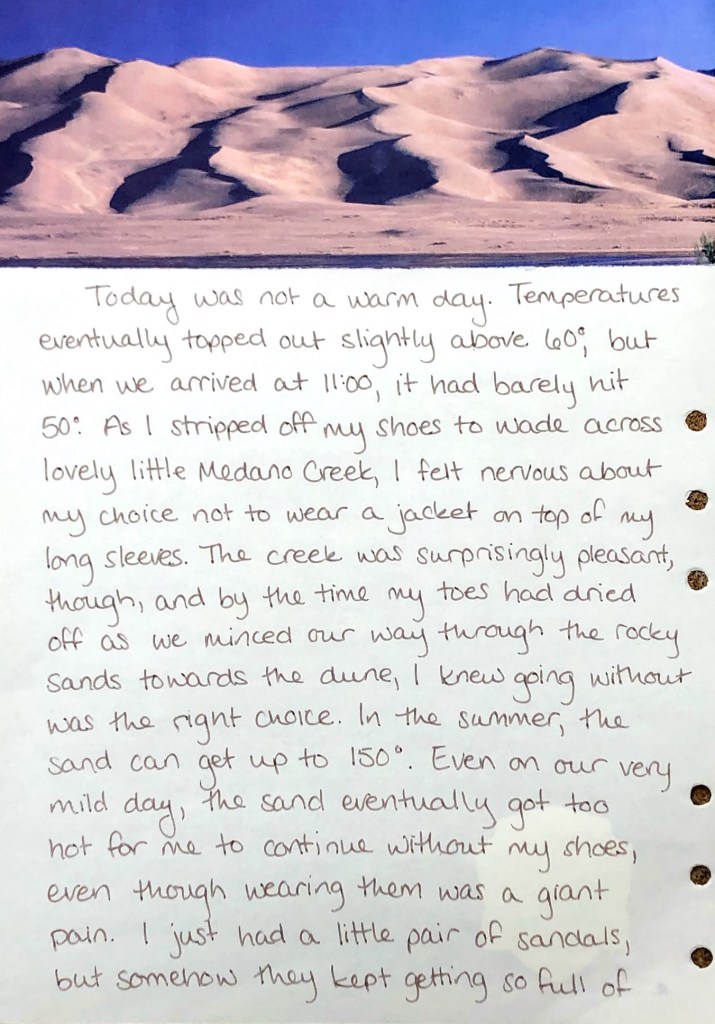 Today was not a warm day. Temperatures
eventually topped out slightly above 60°, but
when we arrived at 11:00, it had barely hit
50°. As I stripped off my shoes to wade across
lovely little Medano Creek, I felt nervous about
my choice not to wear a jacket on top of my
long sleeves. The creek was surprisingly pleasant,
though, and by the time my toes had dried
off as we minced our way through the rocky
sands towards the dune, I knew going without
was the right choice. In the summer, the
sand can get up to 150°. Even on our very
mild day, the sand eventually got too
hot for me to continue without my shoes,
even though wearing them was a giant
pain. I just had a little pair of sandals,
but somehow they kept getting so full of